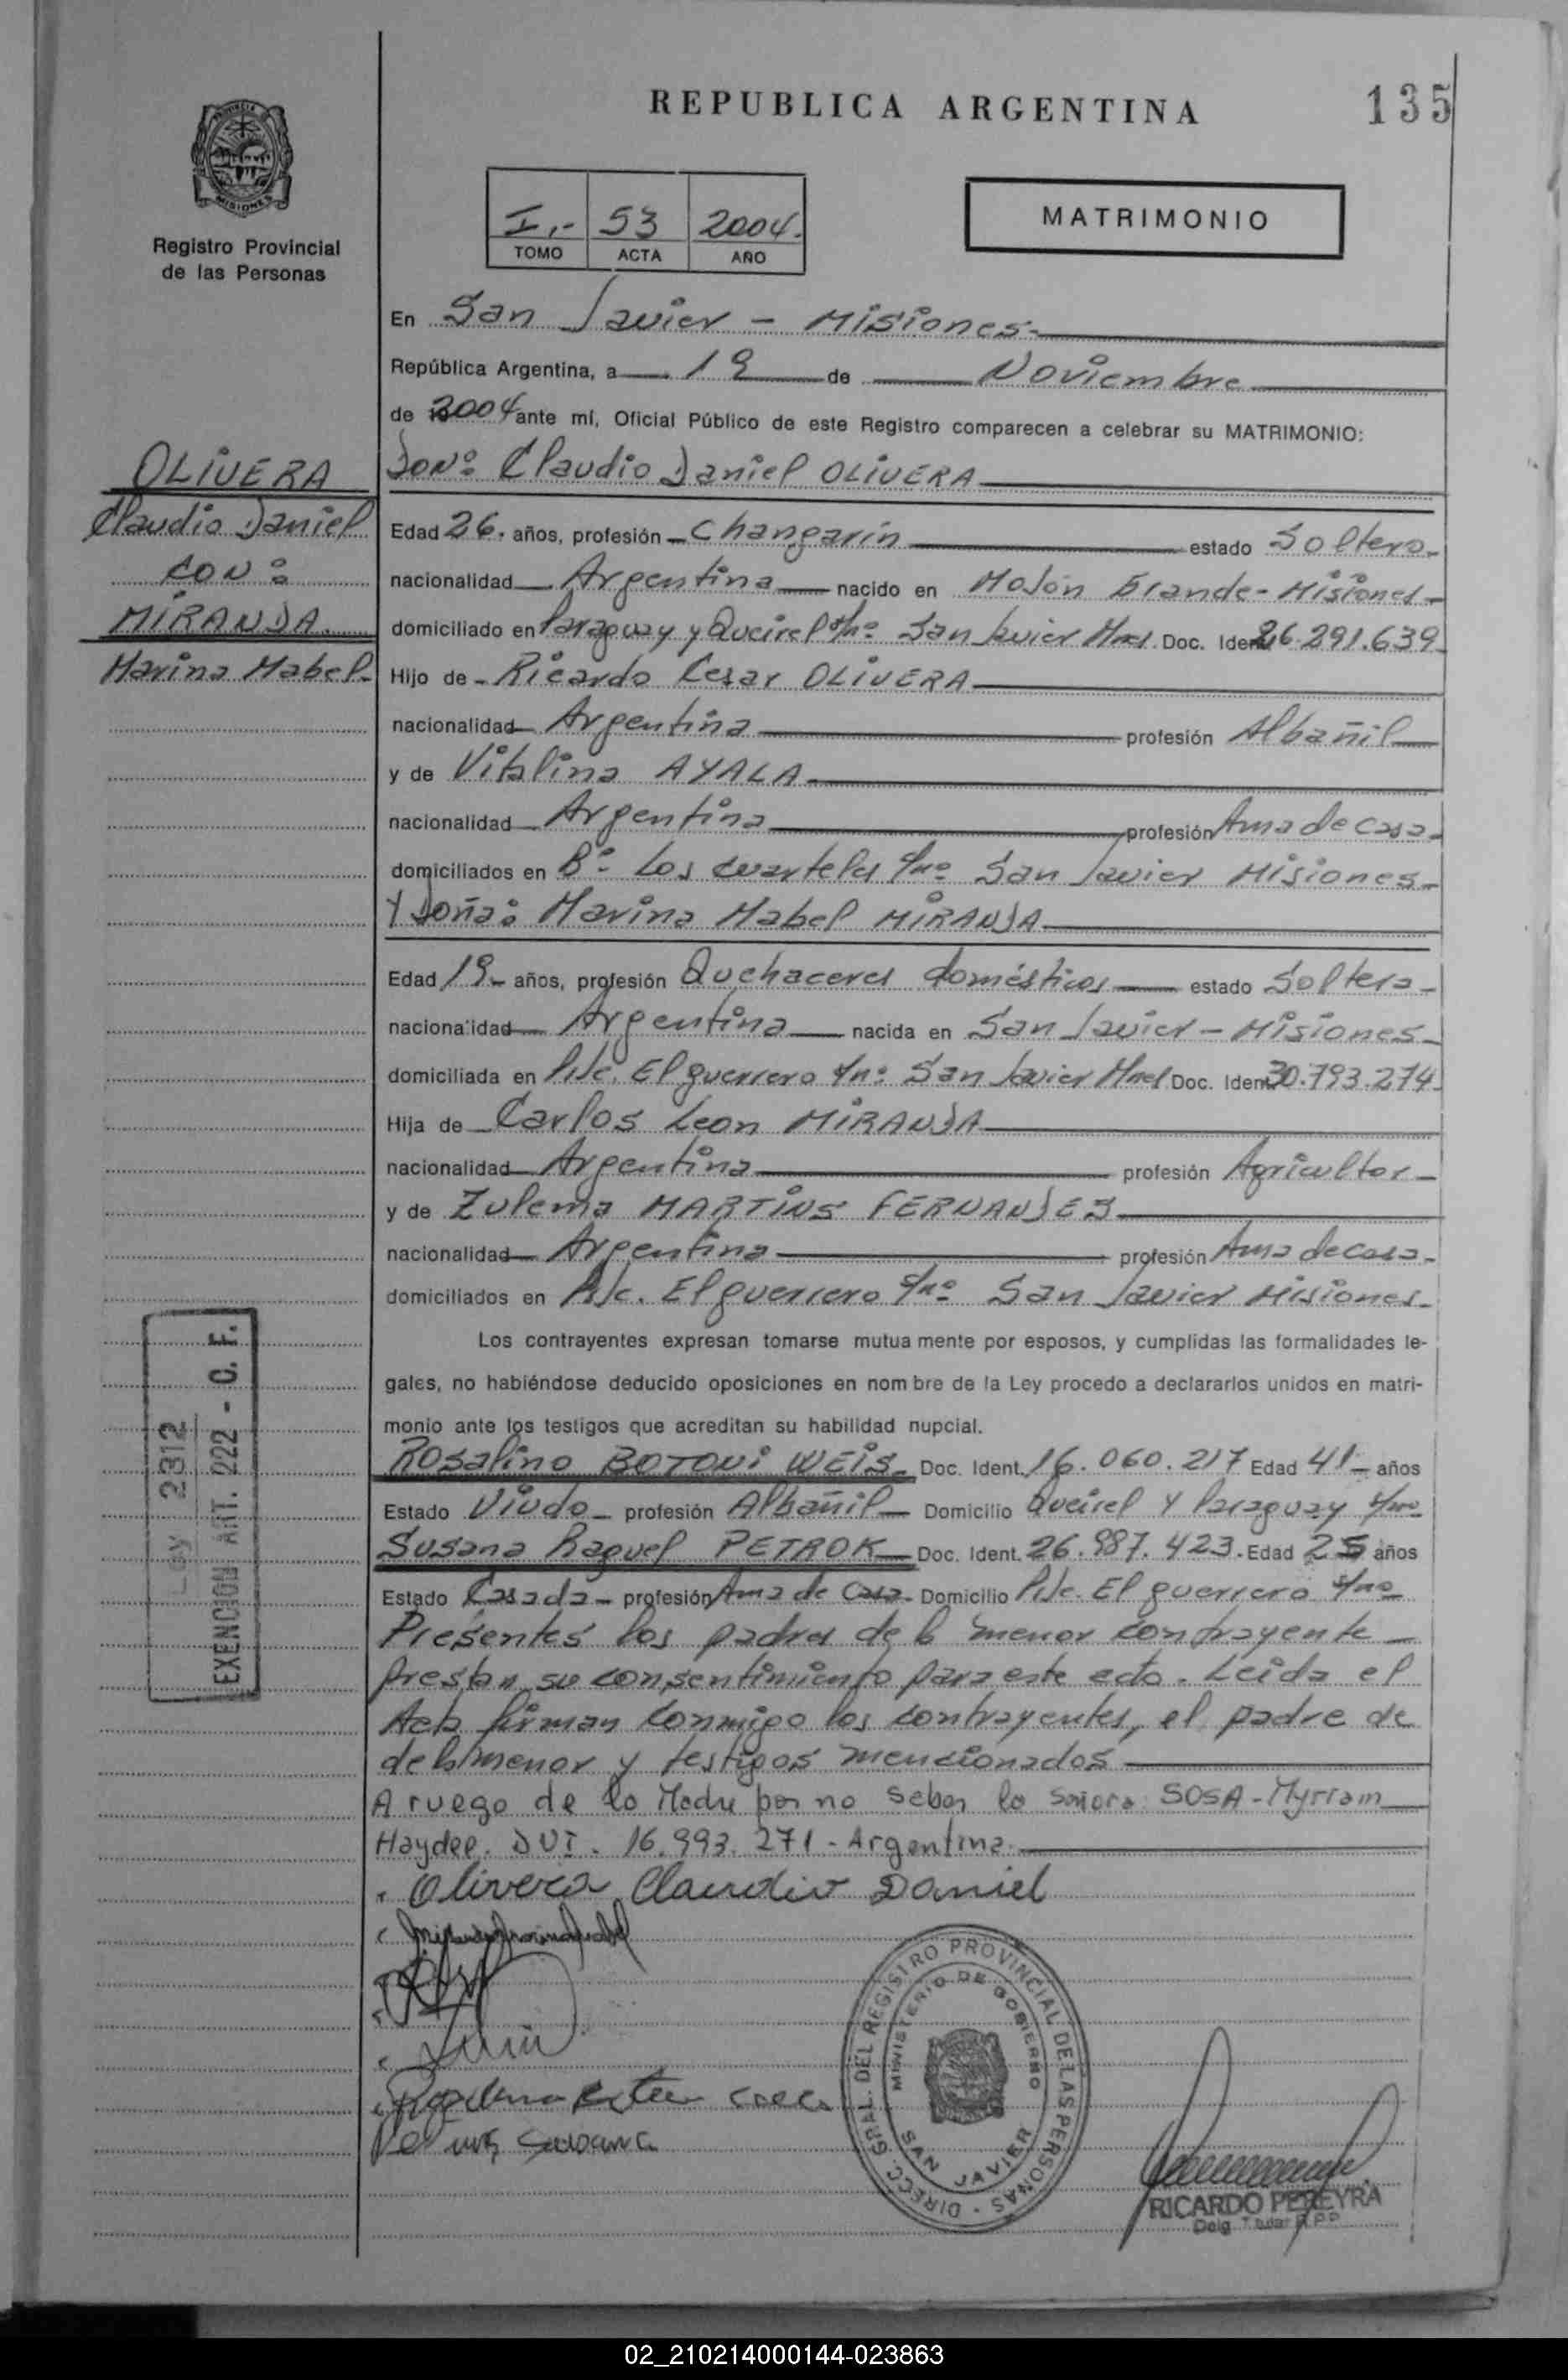 REPUBLICA ARGENTINA
135
PROVINCIA
MISIONES
Registro Provincial
de las Personas
I.- 53 2004.
TOMO ACTA AÑO
MATRIMONIO
En San Javier - Misiones-
República Argentina, a 19 de Noviembre
de 2004 ante mí, Oficial Público de este Registro comparecen a celebrar su MATRIMONIO:
OLIVERA
Claudio Daniel
CON:
MIRANDA
Marina Mabel-
DON: Claudio Daniel OLIVERA
Edad 26. años, profesión - Changarín estado Soltero-
nacionalidad Argentina nacido en Mojón Grande - Misiones-
domiciliado en Paraguay y Queirel s/nº San Javier Mnes. Doc. Ident. 26.291.639
Hijo de - Ricardo Cesar OLIVERA
nacionalidad Argentina profesión Albañil
y de Vitalina AYALA
nacionalidad Argentina profesión Ama de casa-
domiciliados en Bº Los cuarteles s/nº San Javier Misiones-
Y Doña: Marina Mabel MIRANDA
Edad 19- años, profesión Quehaceres domésticos estado Soltera-
nacionalidad Argentina nacida en San Javier - Misiones-
domiciliada en Pje. El guerrero s/nº San Javier Mnes Doc. Ident. 30.793.274
Hija de Carlos Leon MIRANDA
nacionalidad Argentina profesión Agricultor-
y de Zulema MARTINS FERNANDES
nacionalidad Argentina profesión Ama de casa-
domiciliados en Pje. El guerrero s/nº San Javier Misiones-
Los contrayentes expresan tomarse mutua mente por esposos, y cumplidas las formalidades le-
gales, no habiéndose deducido oposiciones en nom bre de la Ley procedo a declararlos unidos en matri-
monio ante los testigos que acreditan su habilidad nupcial.
Rosalino BOTONI WEIS- Doc. Ident. 16.060.217 Edad 41- años
Estado Viudo- profesión Albañil- Domicilio Queirel y Paraguay s/nº
Susana Raquel PETROK Doc. Ident. 26.887.423. Edad 25 años
Estado Casada- profesión Ama de Casa- Domicilio Pje. El guerrero s/nº
Presentes los padres de la menor contrayente
prestan su consentimiento para este acto. Leida el
Acta firman conmigo los contrayentes, el padre de
de la menor y testigos mencionados
A ruego de la Madre por no saber la señora SOSA - Myrriam
Haydee. DNI. 16.993.271 - Argentina.
Olivera Claudio Daniel
Ley 2312
EXENCION ART. 222 - C. F.
DIRECC. GRAL. DEL REGISTRO PROVINCIAL DE LAS PERSONAS
MINISTERIO DE GOBIERNO
SAN JAVIER
RICARDO PEREYRA
Deleg. Titular R.P.P.
02_210214000144-023863